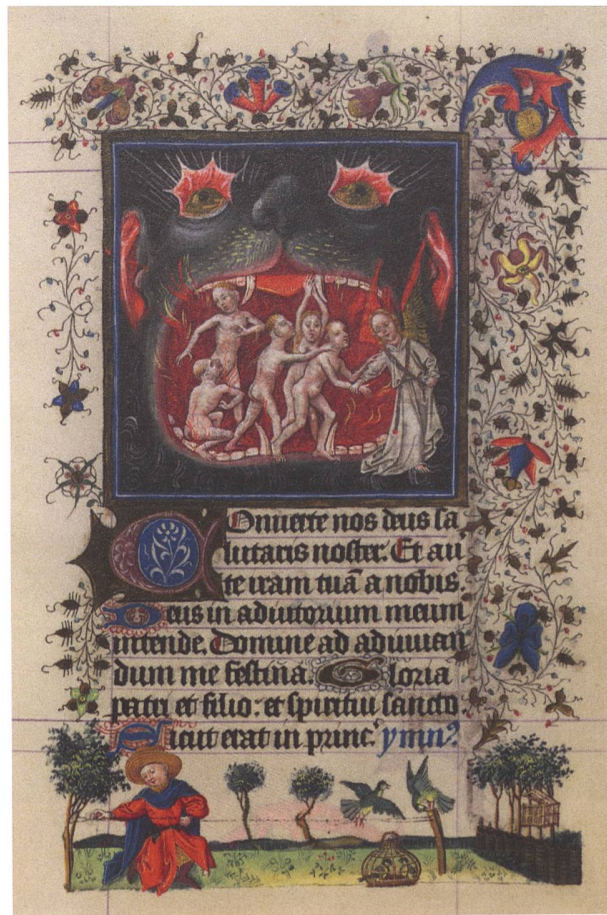 Conuerte nos deus sa
lutaris noster. Et au
te iram tuā a nobis.
Deus in adiutorium meum
intende. Domine ad adiuuan
dum me festina. Gloria
patri et filio: et spiritui sancto
Sicut erat in princ. ymn?